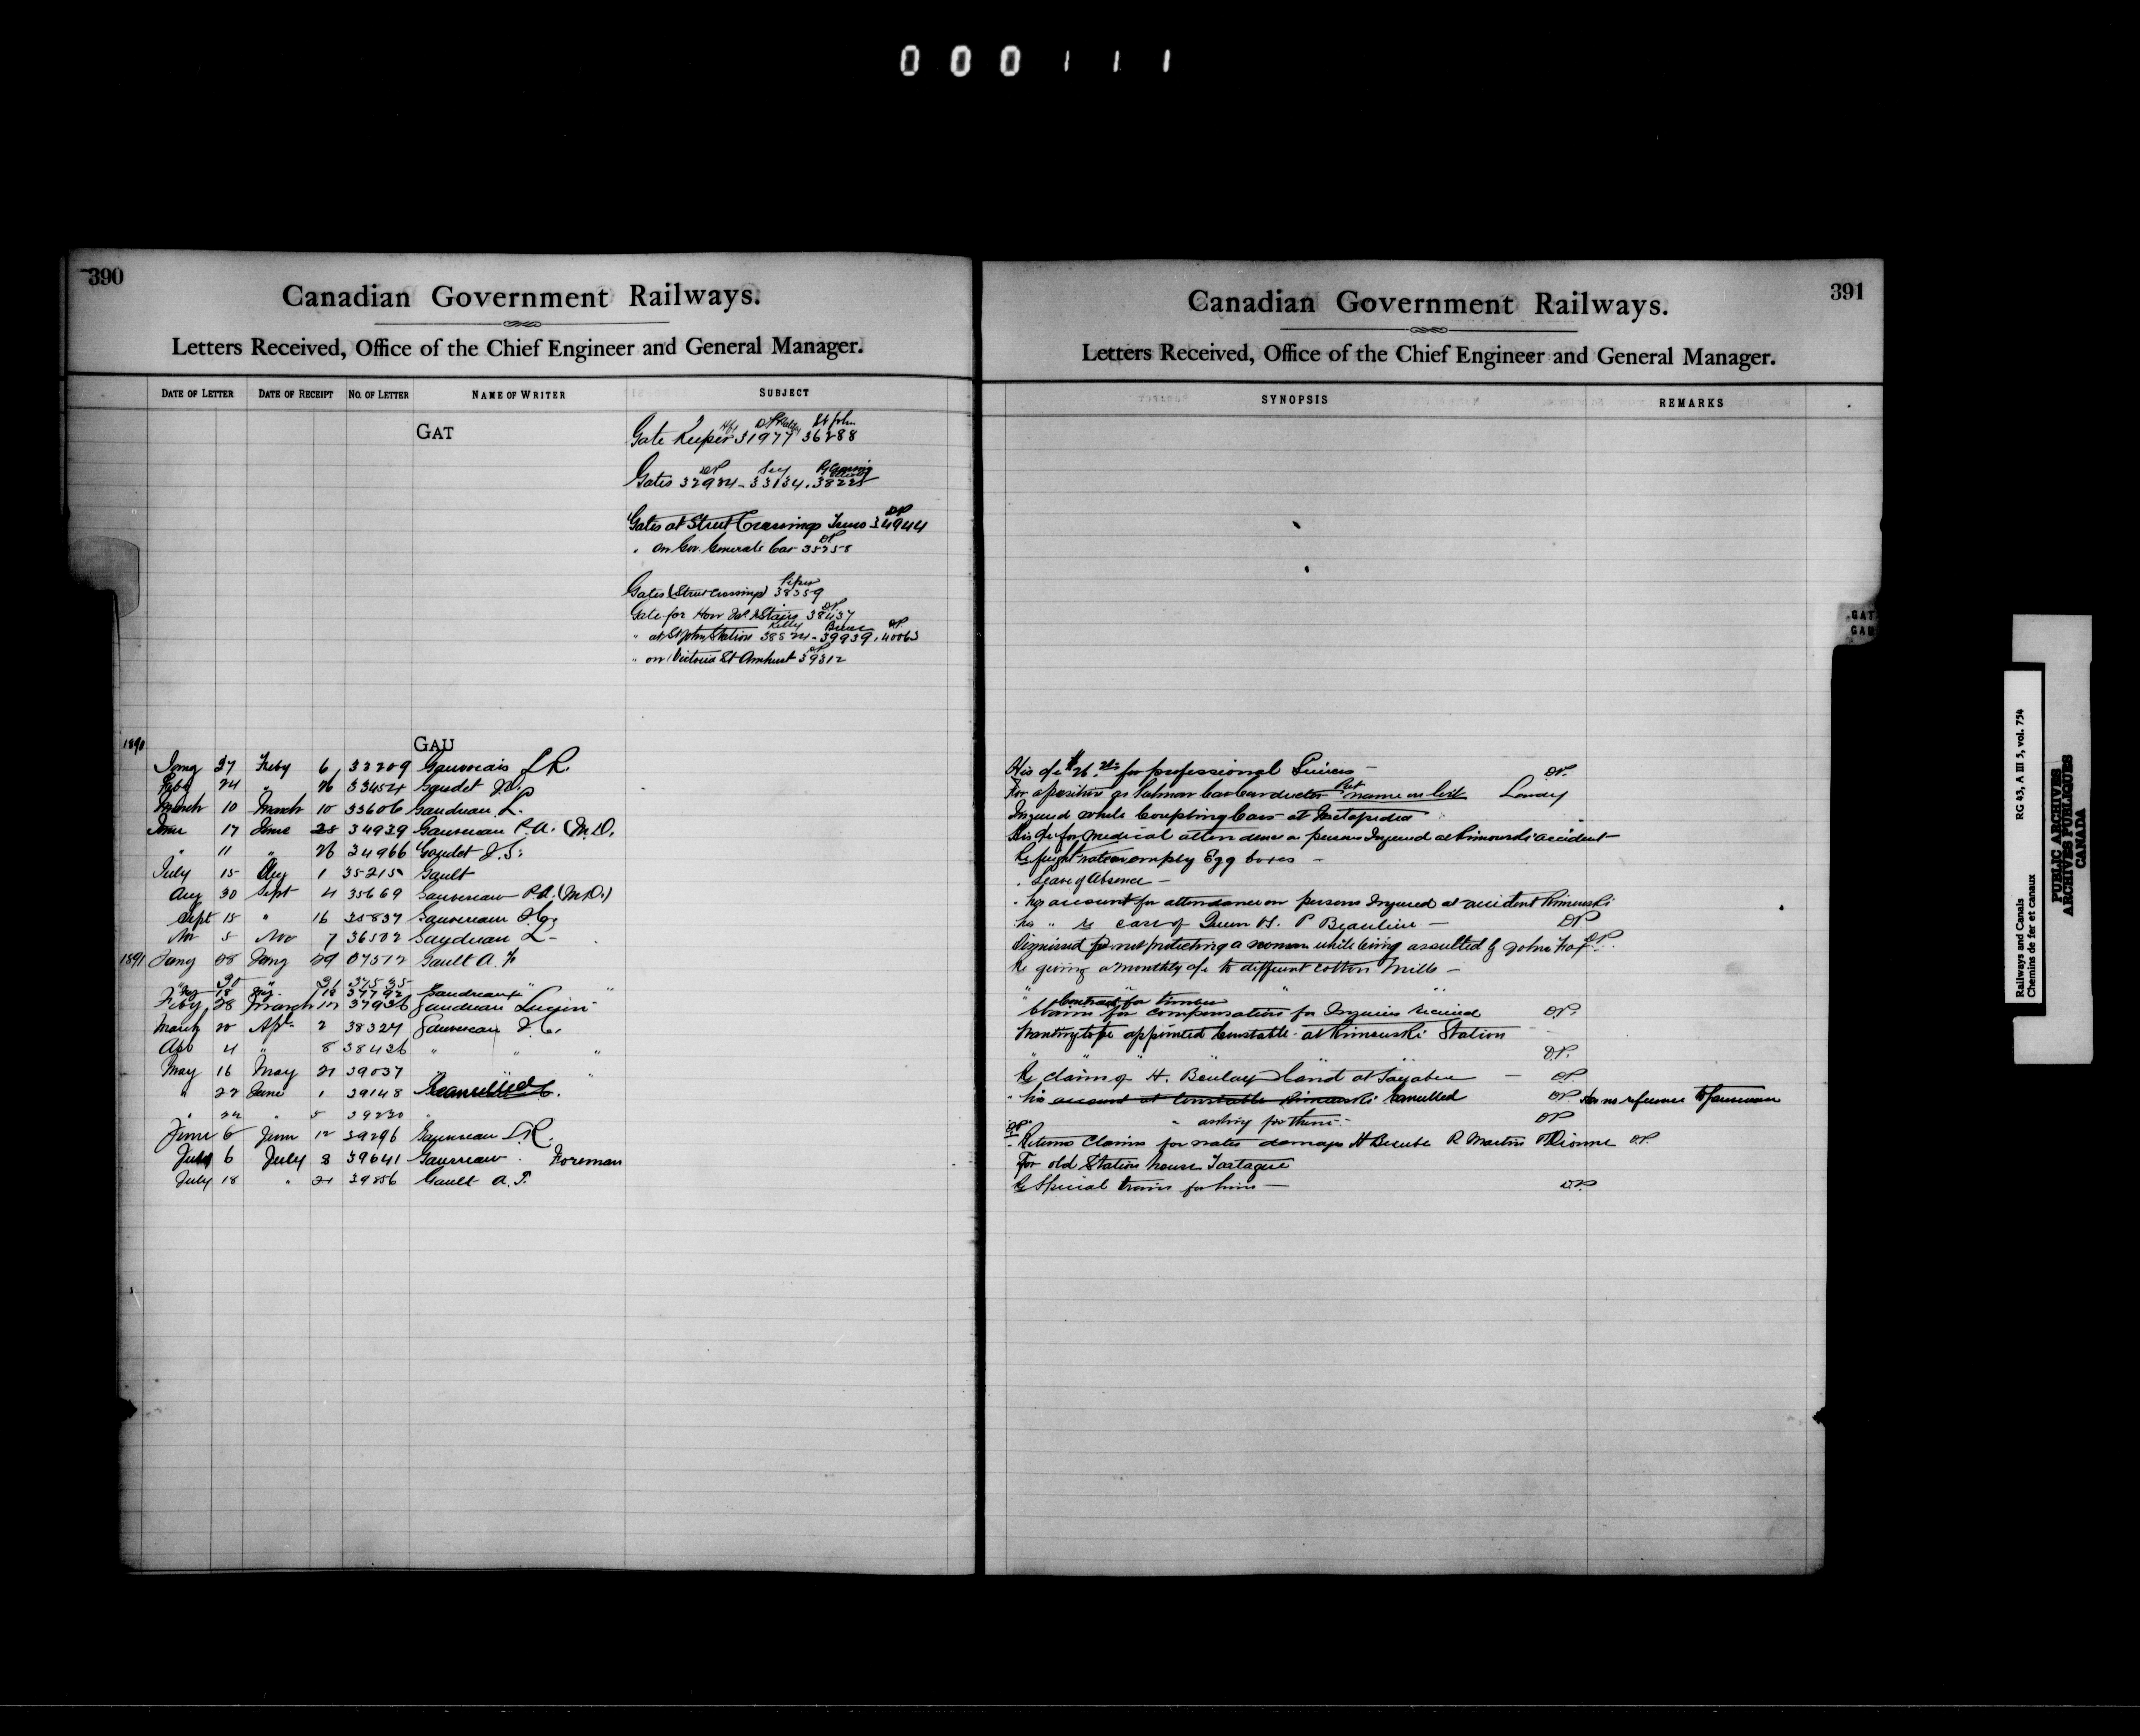 000111
390
Canadian Government Railways.
Letters Received, Office of the Chief Engineer and General Manager.
DATE OF LETTER DATE OF RECEIPT NO. OF LETTER NAME OF WRITER SUBJECT
GAT
St John
Gate Keeper 31977 36288
DP
Gates 32924 - 33134. 38225
DP
Gates at Street Crossings Truro 34944
DP
" on Gov. Generals Car 35258
Gates (Street Crossings) 38359
DP
Gate for Hon Stairs 38437
Kelly DP
" at St John Station 38824 - 39939. 40063
DP
" on Victoria St Amherst 39312
1890
GAU
Jany 27 Feby 6 33209 Gauvreau L.R.
Feby 24 " 26 33454 Gaudet
March 10 March 10 33606 Gaudreau L.
June 17 June 25 34929 Gauvreau P.A. (M.D.
" 11 " 26 34966 Gaudet J.S.
July 15 Aug 1 35215 Gault
Aug 30 Sept 4 35669 Gauvreau P.A. (M.D.)
Sept 15 " 16 35837 Gauvreau
Nov 5 Nov 7 36502 Gaudreau L-
1891 Jany 28 Jany 29 37512 Gault A. F.
30 " 31 37535 " "
18 19 37792 Gaudreau
Feby 28 March 37936 Gaudreau
March 20 Apl. 2 38324 Gauvreau
Apl 4 " 8 38426 " " "
May 16 May 21 39037 " "
" 27 June 1 39148 Cancelled
" 5 39220 "
June 6 June 12 39296 Gauvreau L.R.
July 6 July 8 39641 Gauvreau. Foreman
July 18 " 21 39856 Gault A. F.
391
Canadian Government Railways.
Letters Received, Office of the Chief Engineer and General Manager.
SYNOPSIS REMARKS
His a/c $26. for professional Services - DP.
For a position as Salmon Car Conductor Put name on list
Injured while Coupling Cars at Metapedia
His a/c for Medical attendance on persons Injured at Rimouski accident
Re freight rate on empty Egg boxes -
" Leave of Absence -
" his account for attendance on persons Injured at accident Rimouski
his " re case of Queen vs. P Beaulieu - DP.
Dismissed for not protecting a woman while being assaulted by John Fox DP.
Re giving a monthly a/c to different cotton Mills -
" " "
Contract for timber
Claims for compensation for Injuries received DP.
Wanting to be appointed Constable at Rimouski Station
" " " " D.P.
Re claim of H. Land at - DP.
" his account at Constable Rimouski Cancelled DP. Has no reference to Gauvreau
" asking for them. DP
Returns Claims for water damages H Berube R Martin Dionne DP.
For old Station house
Re Special train for him - D.P.
GAT
GAU
Railways and Canals RG 43, A III 5, vol. 754
Chemins de fer et canaux
PUBLIC ARCHIVES
ARCHIVES PUBLIQUES
CANADA